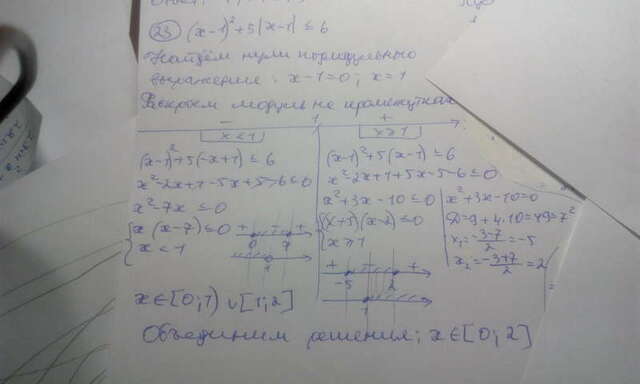 23) (x-1)²+5|x-1| ≤ 6
Найдём нули подмодульного
выражение: x-1=0; x=1
Раскроем модуль на промежутках
- 1 +
x<1
(x-1)²+5(-x+1) ≤ 6
x²-2x+1-5x+5-6≤0
x²-7x ≤ 0
{ x(x-7)≤0
x<1
+ - +
0 7
1
x∈[0;1) ∪ [1;2]
x≥1
(x-1)²+5(x-1) ≤ 6
x²-2x+1+5x-5-6≤0
x²+3x-10≤0
{ (x+5)(x-2)≤0
x≥1
+ - +
-5 2
1
x²+3x-10=0
D=9+4·10=49=7²
x₁=\frac{-3-7}{2}=-5
x₂=\frac{-3+7}{2}=2
Объединим решения; x∈[0;2]